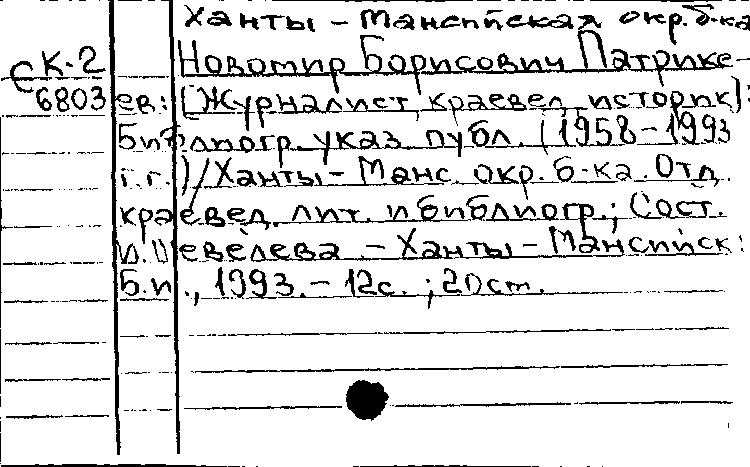 Ханты-Мансийская окр. б-ка
СК-2
6803
Новомир Борисович Патрике-
ев: [Журналист, краевед, историк]:
Библиогр. указ. публ. (1958-1993
г.г.)/Ханты-Манс. окр. б-ка. Отд.
краевед. лит. и библиогр.; Сост.
И. Шевелева. - Ханты-Мансийск:
Б.и., 1993. - 12с. ; 20 см.